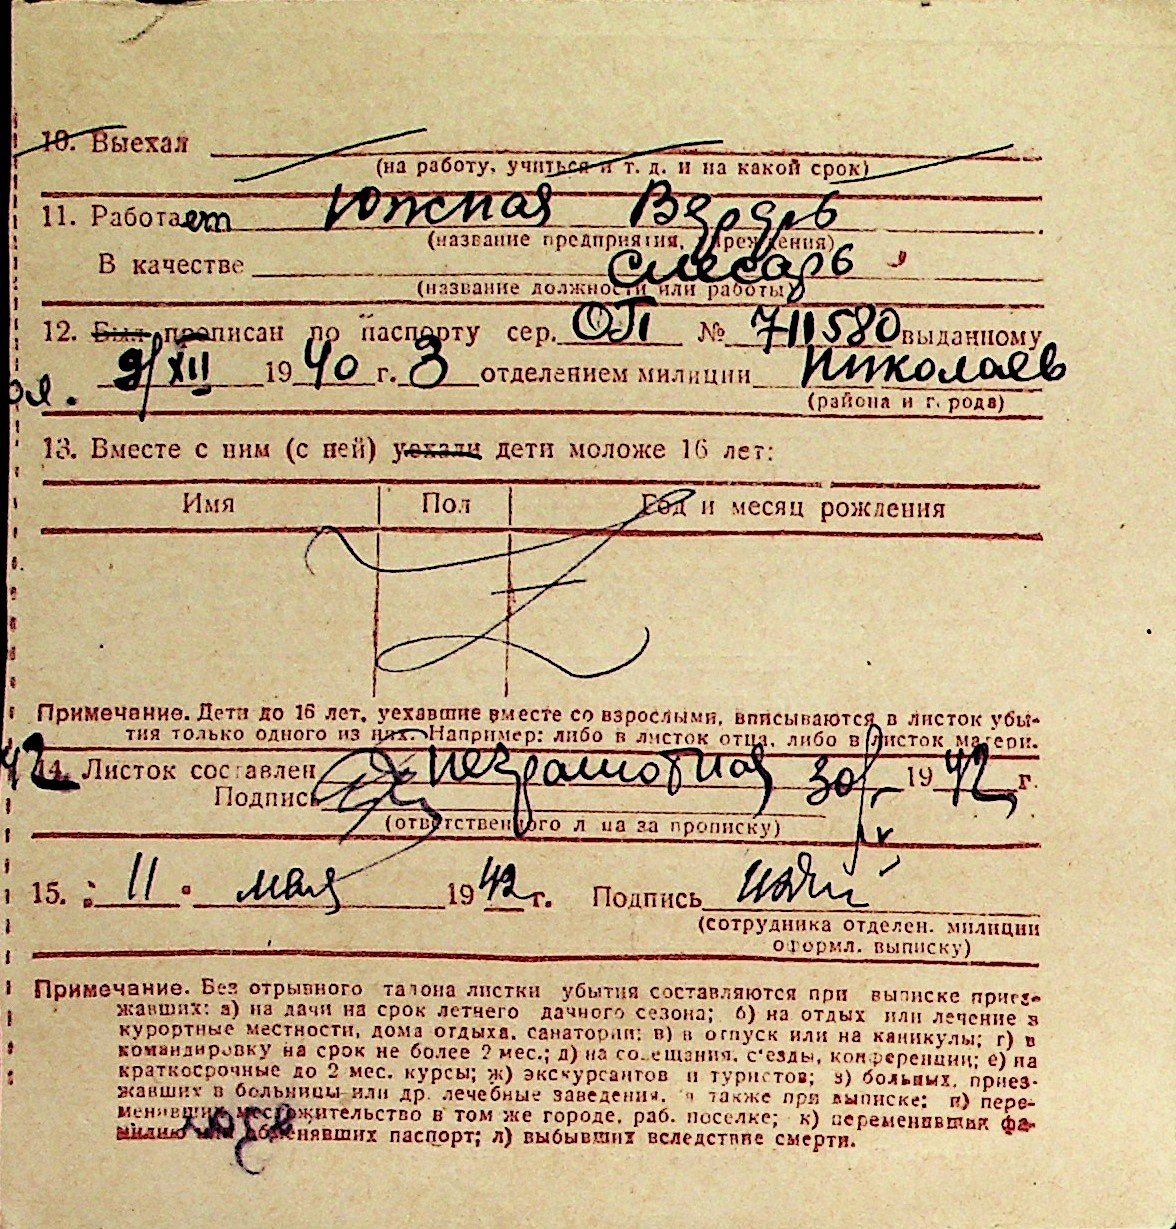 10. Выехал
(на работу, учиться и т. д. и на какой срок)
11. Работает Южная Верфь
(название предприятия, учреждения)
В качестве слесарь
(название должности или работы)
12. Был прописан по паспорту сер. ОП № 711580 выданному
9/XII 1940 г. 3 отделением милиции Николаев
(района и г. рода)
13. Вместе с ним (с ней) уехали дети моложе 16 лет:
Имя Пол Год и месяц рождения
Примечание. Дети до 16 лет, уехавшие вместе со взрослыми, вписываются в листок убы-
тия только одного из них. Например: либо в листок отца, либо в листок матери.
14. Листок составлен неграмотная 30/ 1942 г.
Подпись
(ответственного лица за прописку)
15. 11 мая 1942 г. Подпись
(сотрудника отделен. милиции
оформл. выписку)
Примечание. Без отрывного талона листки убытия составляются при выписке приез-
жавших: а) на дачи на срок летнего дачного сезона; б) на отдых или лечение в
курортные местности, дома отдыха, санатории; в) в отпуск или на каникулы; г) в
командировку на срок не более 2 мес.; д) на совещания, с'езды, конференции; е) на
краткосрочные до 2 мес. курсы; ж) экскурсантов и туристов; з) больных, приез-
жавших в больницы или др. лечебные заведения, а также при выписке: и) пере-
менивших местожительство в том же городе, раб. поселке; к) переменивших фа-
милию или обменявших паспорт; л) выбывших вследствие смерти.